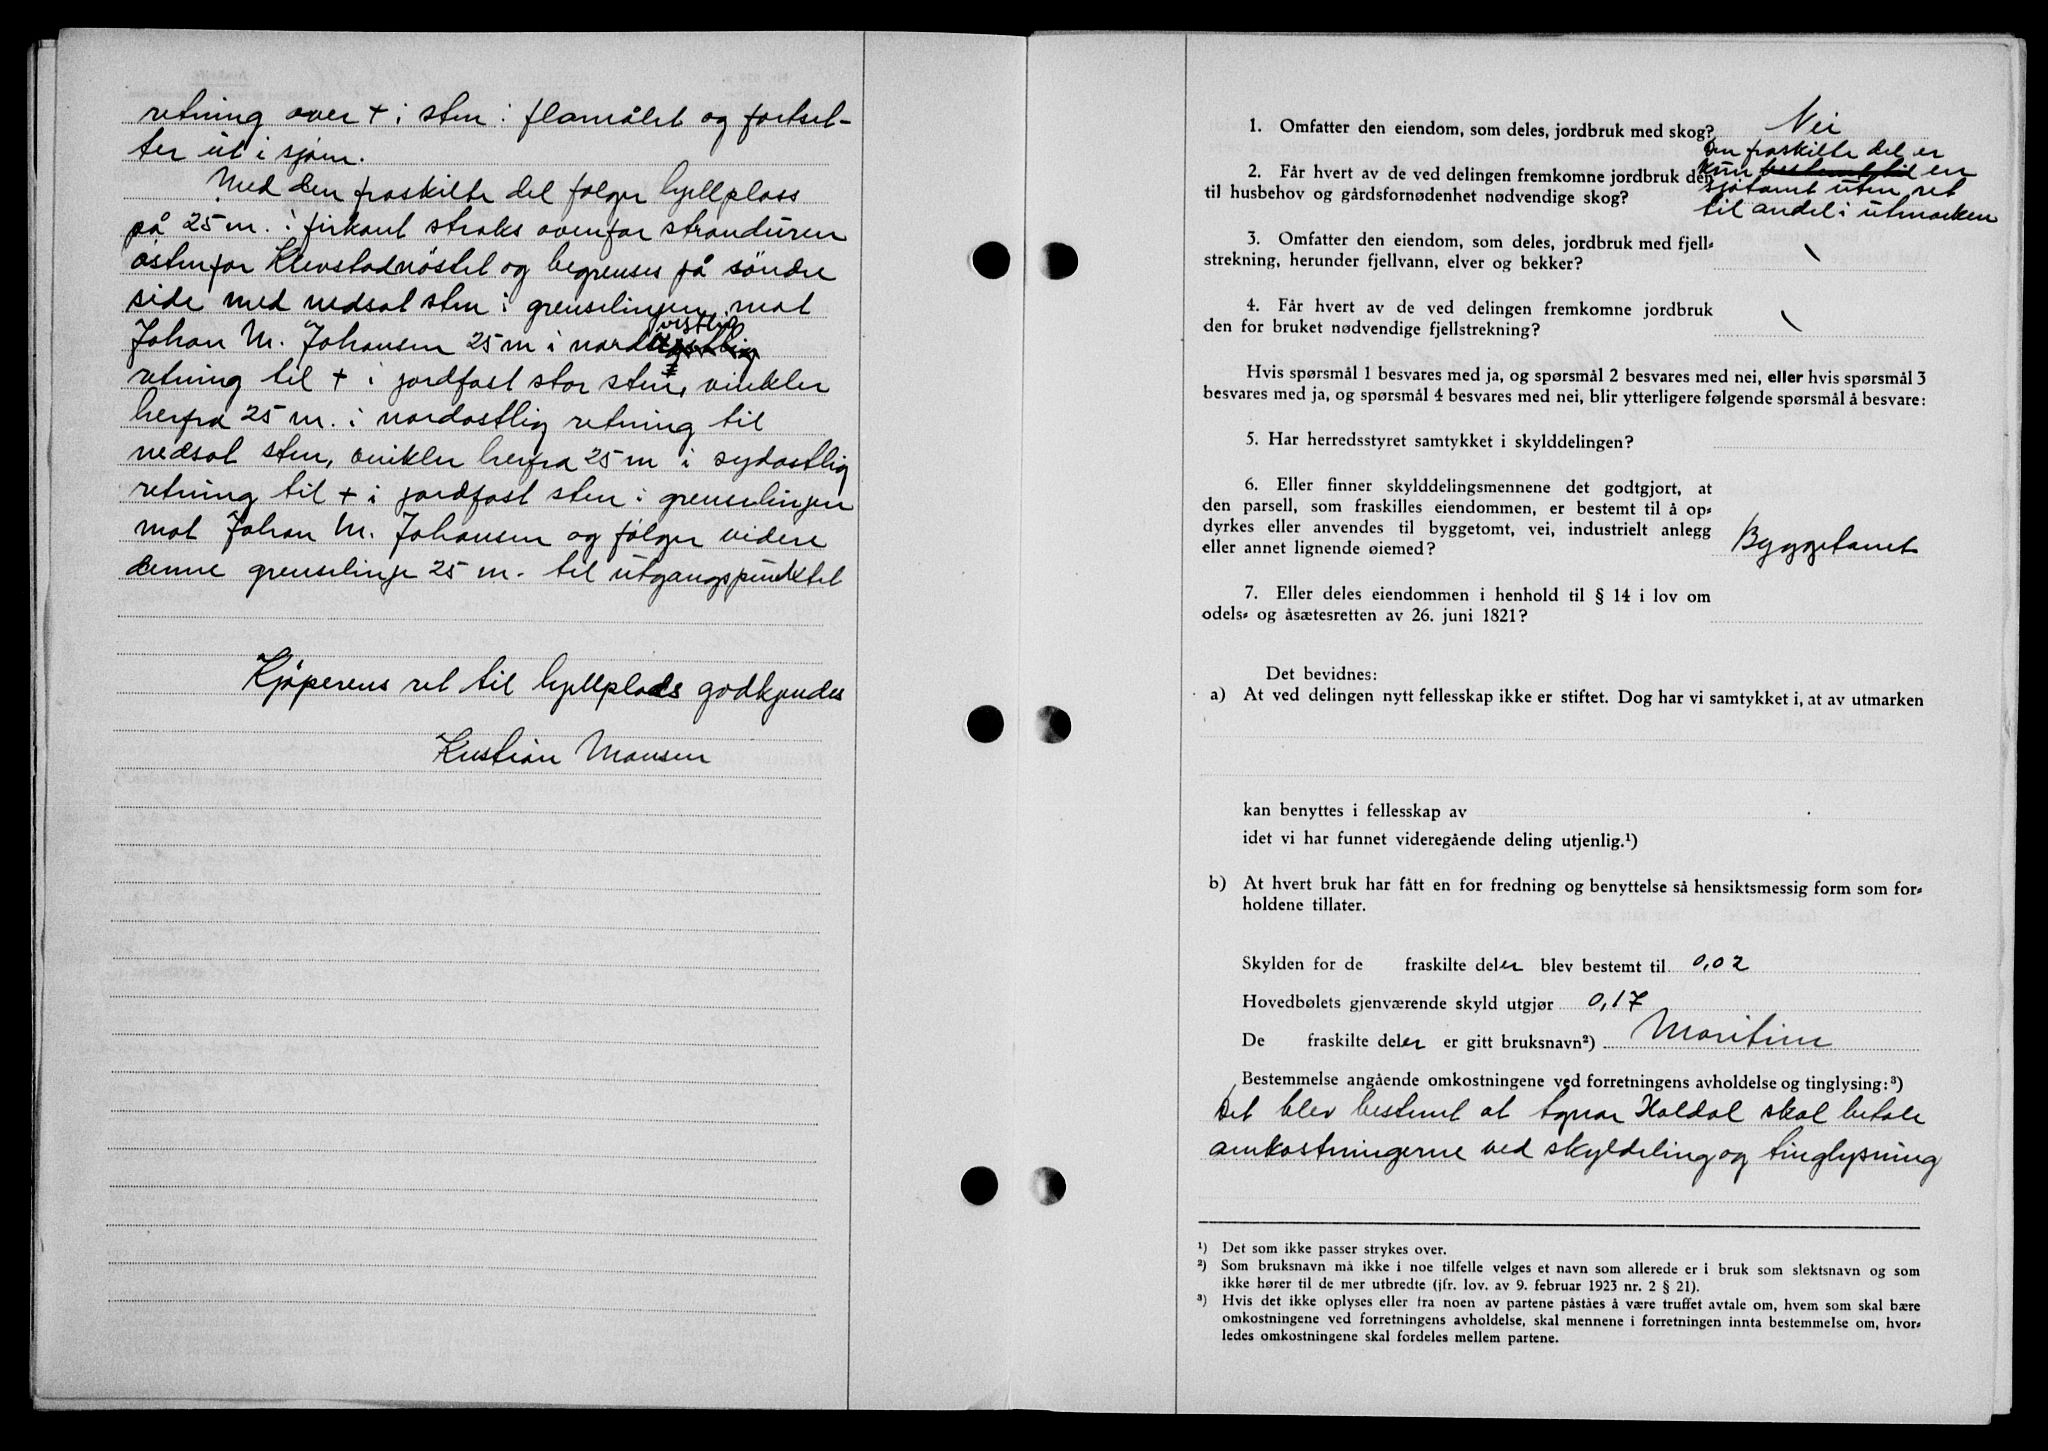 retning over + i sten i flomålet og fortset-
ter ut i sjøen.
Med den fraskilte del følger hjellplass
på 25 m. i firkant straks ovenfor strandúren
østenfor Klevstadnøstet og begrenses på søndre
side med nedsat sten i grenselinjen mot
Johan M. Johansen 25 m i nordvestlig
retning til + i jordfast stor sten, vinkler
herfra 25 m. i nordøstlig retning til
nedsat sten, vinkler herfra 25 m i sydøstlig
retning til + i jordfast sten i grenselinjen
mot Johan M. Johansen og følger videre
denne grenselinje 25 m. til utgangspunktet
Kjøperens ret til hjellplads godkjendes
Kristian Monsen
1. Omfatter den eiendom, som deles, jordbruk med skog? Nei
2. Får hvert av de ved delingen fremkomne jordbruk den
til husbehov og gårdsfornødenhet nødvendige skog?
Den fraskilte del er
kun bestemt til en
sjøtomt uten ret
til andel i utmarken
3. Omfatter den eiendom, som deles, jordbruk med fjell-
strekning, herunder fjellvann, elver og bekker? \
4. Får hvert av de ved delingen fremkomne jordbruk
den for bruket nødvendige fjellstrekning? \
Hvis spørsmål 1 besvares med ja, og spørsmål 2 besvares med nei, eller hvis spørsmål 3
besvares med ja, og spørsmål 4 besvares med nei, blir ytterligere følgende spørsmål å besvare:
5. Har herredsstyret samtykket i skylddelingen?
6. Eller finner skylddelingsmennene det godtgjort, at
den parsell, som fraskilles eiendommen, er bestemt til å op-
dyrkes eller anvendes til byggetomt, vei, industrielt anlegg
eller annet lignende øiemed? Byggetomt
7. Eller deles eiendommen i henhold til § 14 i lov om
odels- og åsætesretten av 26. juni 1821?
Det bevidnes:
a) At ved delingen nytt fellesskap ikke er stiftet. Dog har vi samtykket i, at av utmarken
kan benyttes i fellesskap av
idet vi har funnet videregående deling utjenlig.¹)
b) At hvert bruk har fått en for fredning og benyttelse så hensiktsmessig form som for-
holdene tillater.
Skylden for de fraskilte deler blev bestemt til 0,02
Hovedbølets gjenværende skyld utgjør 0,17
De fraskilte deler er gitt bruksnavn²) Maritim
Bestemmelse angående omkostningene ved forretningens avholdelse og tinglysing:³)
Det blev bestemt at Agnar Holdal skal betale
omkostningerne ved skyldeling og tinglysning
¹) Det som ikke passer strykes over.
²) Som bruksnavn må ikke i noe tilfelle velges et navn som allerede er i bruk som slektsnavn og som
ikke hører til de mer utbredte (jfr. lov. av 9. februar 1923 nr. 2 § 21).
³) Hvis det ikke oplyses eller fra noen av partene påståes å være truffet avtale om, hvem som skal bære
omkostningene ved forretningens avholdelse, skal mennene i forretningen innta bestemmelse om, hvor-
ledes omkostningene skal fordeles mellem partene.